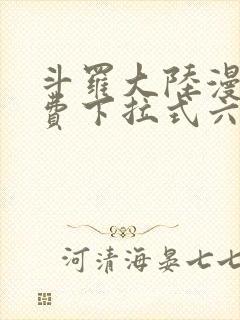 斗羅大陸漫
費下拉式六
河清海晏七七